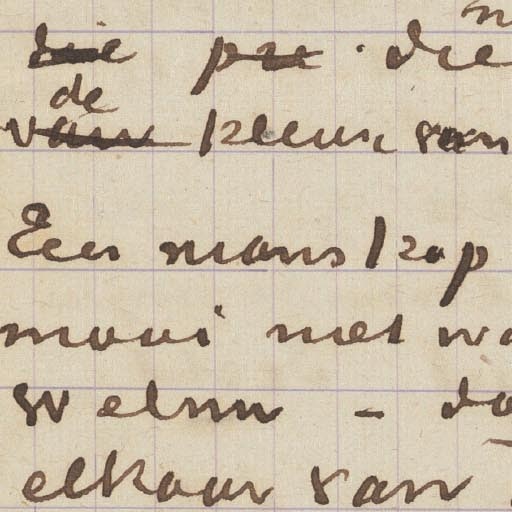 die pre. die
de
van kleur van
Een mans kop
mooi met wa
welnu - da
elkaar van